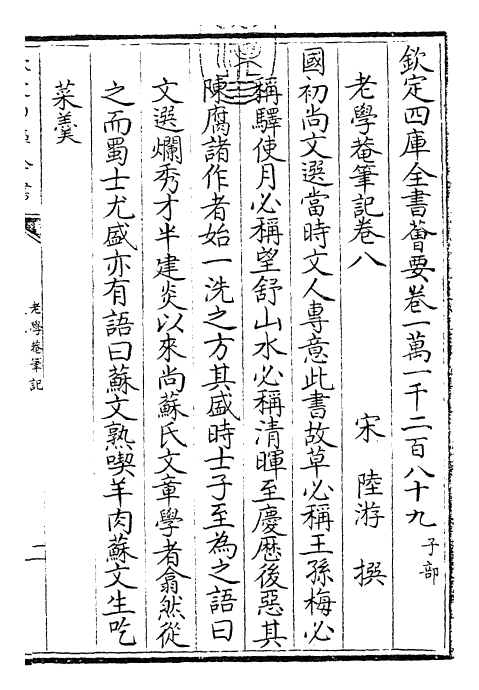 欽定四庫全書薈要卷一萬一千二百八十九 子部
老學菴筆記卷八
宋 陸游 撰
國初尚文選當時文人專意此書故草必稱王孫梅必
稱驛使月必稱望舒山水必稱清暉至慶歴後惡其
陳腐諸作者始一洗之方其盛時士子至為之語曰
文選爛秀才半建炎以來尚蘇氏文章學者翕然從
之而蜀士尤盛亦有語曰蘇文熟喫羊肉蘇文生吃
菜羹
老學菴筆記